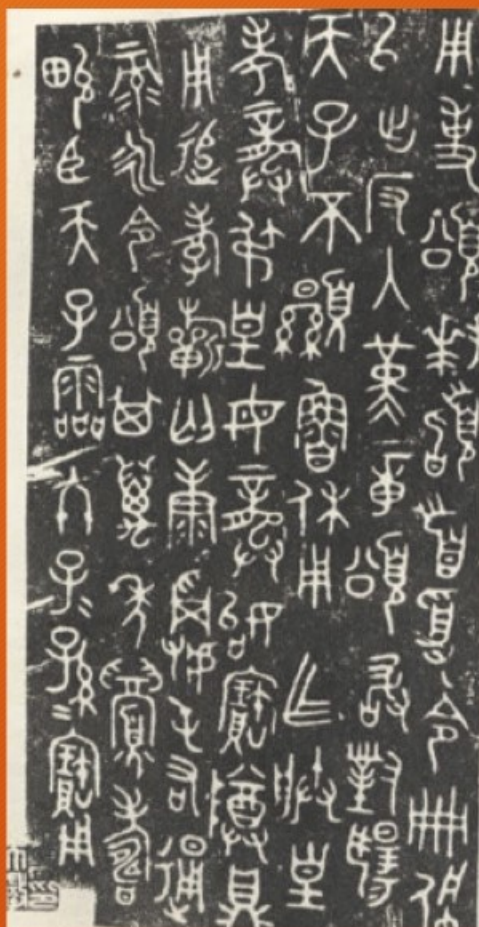 用事頌拜䭫首受令冊佩
以出反入堇章頌敢對揚
天子不顯魯休用乍朕皇
考龏弔皇母龏始寶尊鼎
用追孝祈匄康𩁹屯右通
彔永令頌其萬年眉壽
畯臣天子霝冬子=孫=寶用